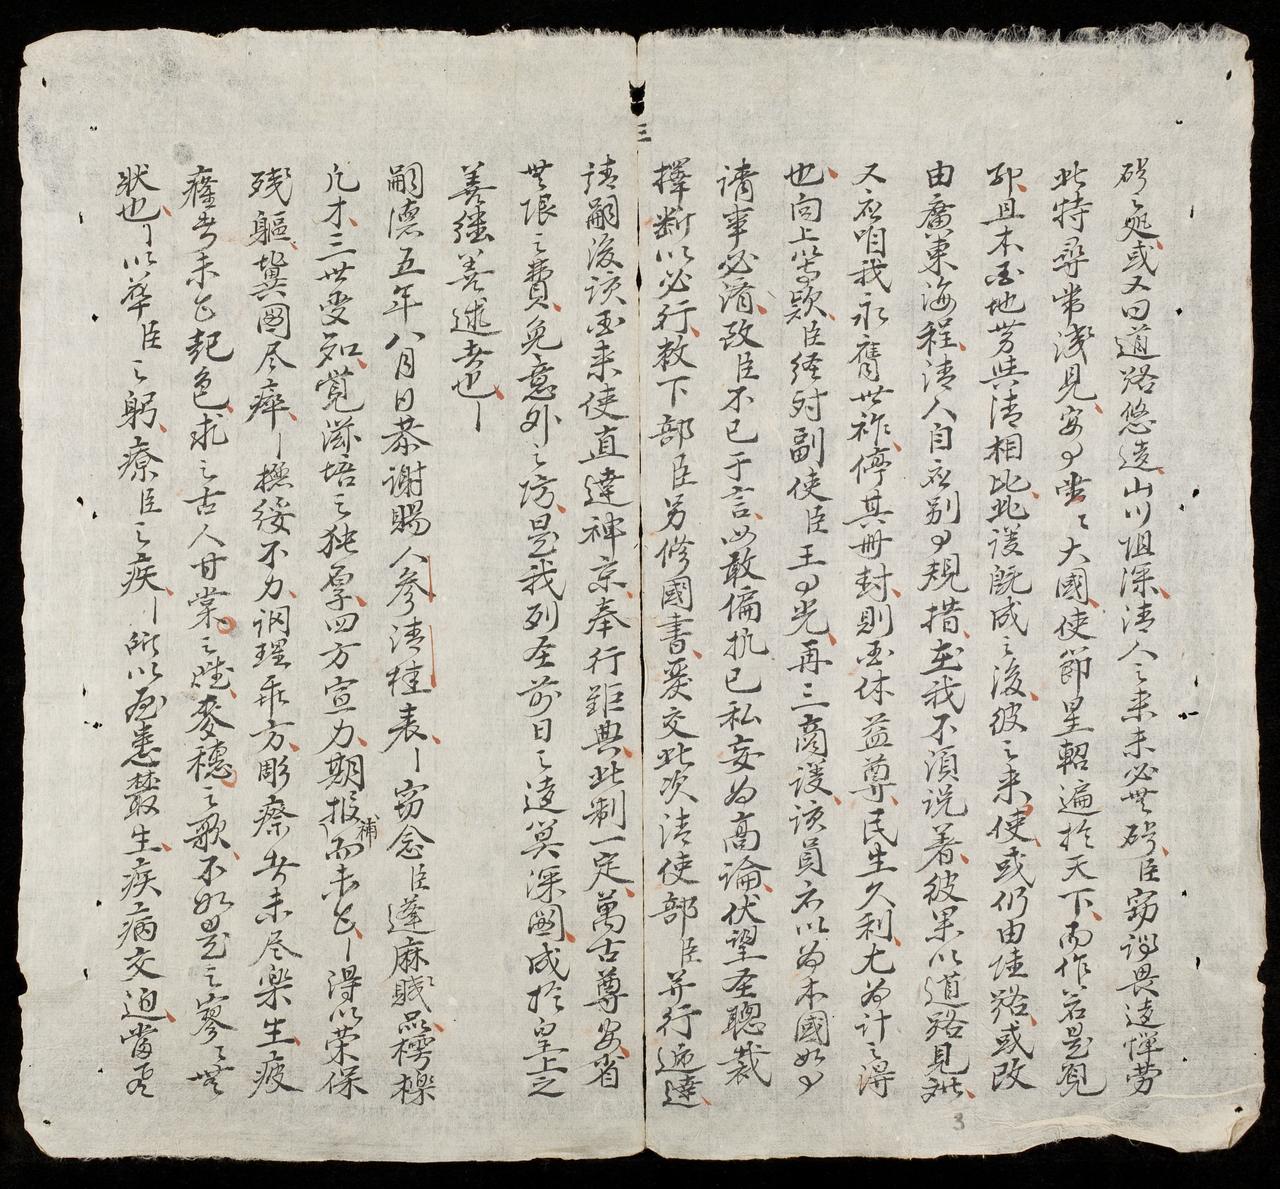 碍之処或又曰道路悠遠山川阻深清人之来未必無碍臣窃謂畏遠憚劳
此特尋常浅見安有堂々大國使節星軺遍於天下而作若是觀
耶且本国地势與清相比此議既成之後彼之来使或仍由陸路或改
由廣東海程清人自应别有規措在我不須说着彼果以道路見
又应咱我永膺世祚停其冊封則国休益尊民生久利尤为計之得
也向上等款臣经对副使臣王有光再三商議该員亦以为本國如有
请事必须改臣不已于言必敢偏执已私妄为高論伏望圣聰裁
擇断以必行教下部臣另修國書爰交此次清使部臣并行遞達
請嗣後该国来使直達神京奉行鉅典此制一定萬古尊安省
無限之費免意外之防是我列圣前日之遠筭深圖成於皇上之
善繼善述者也
三
嗣德五年八月日恭谢賜人参清桂表 窃念臣蓬麻賤品樗櫟
凡才三世受知覚滋培之独厚四方宣力期報補而未已 得以荣保
残軀冀图尽瘁 撫綏不力调理乖方彫瘵者未尽樂生疲
癃者未已起色求之古人甘棠之陸麥穗之歌不如是之寥々無
状也 以華臣之躬療臣之疾 所以致恙叢生疾病交迫當
3